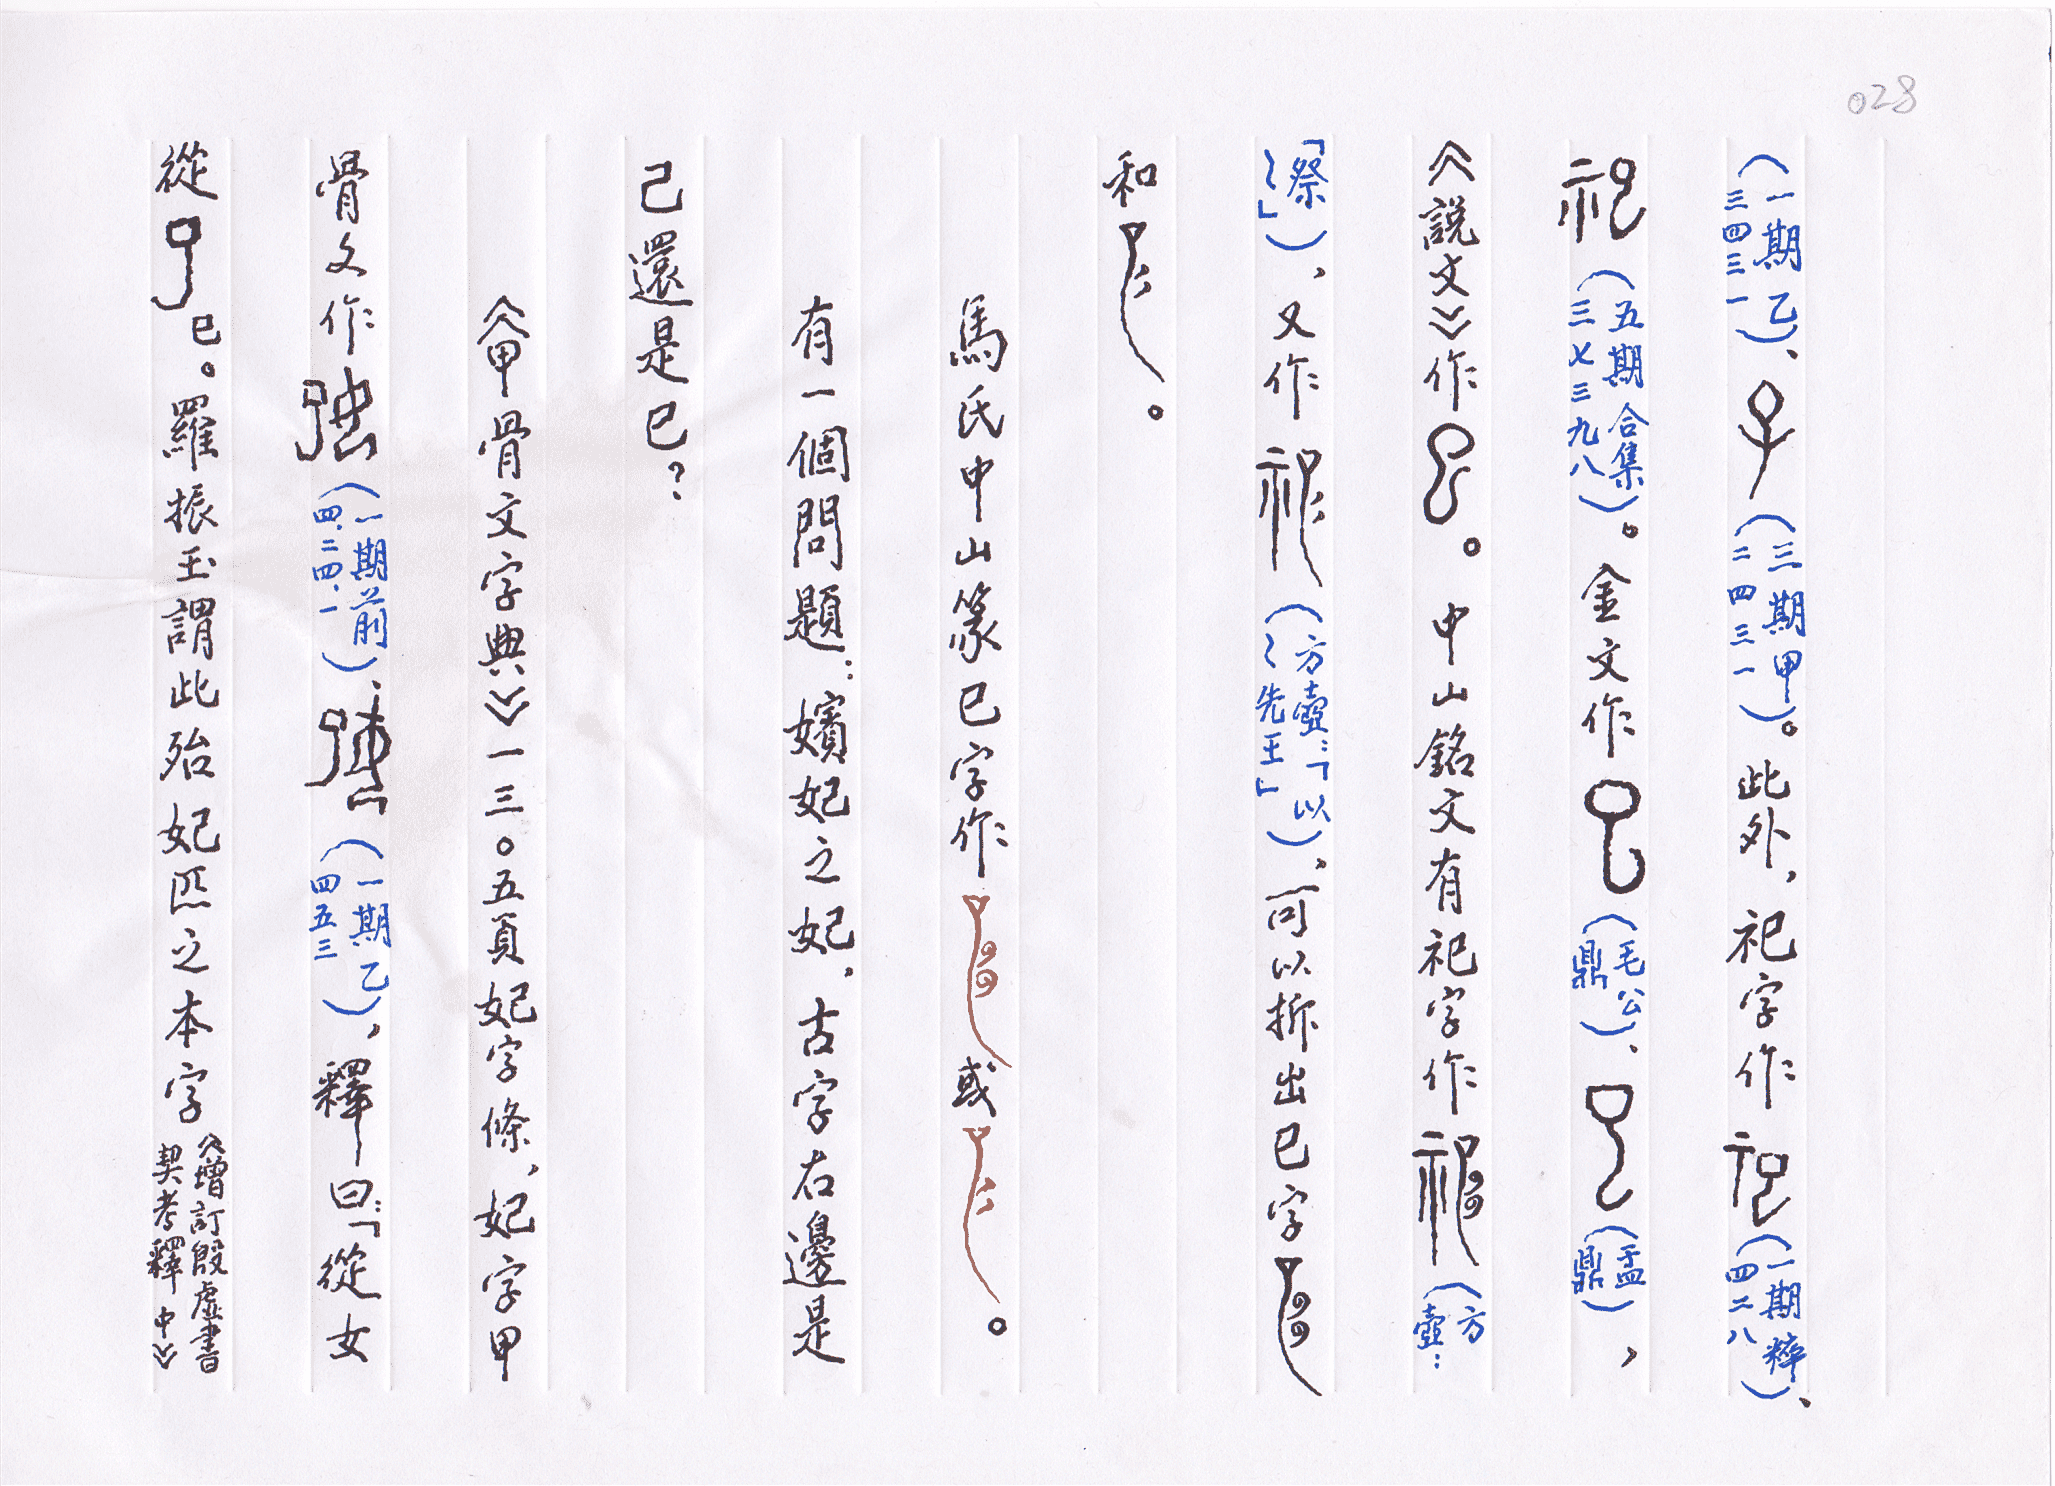 028
（一期乙三四三一）、（三期甲二四三一）。此外，祀字作（一期粹四二八）、
（五期合集三七三九八）。金文作（毛公鼎）、（盂鼎），
《說文》作。中山銘文有祀字作（方壺：
「祭〻」），又作（方壺：「以〻先王」），可以拆出巳字
和。
馬氏中山篆巳字作或。
有一個問題：嬪妃之妃，古字右邊是
己還是巳？
《甲骨文字典》一三〇五頁妃字條，妃字甲
骨文作（一期前四.二四.一）、（一期乙四五三），釋曰：「從女
從巳。羅振玉謂此殆妃匹之本字《增訂殷虛書契考釋中》